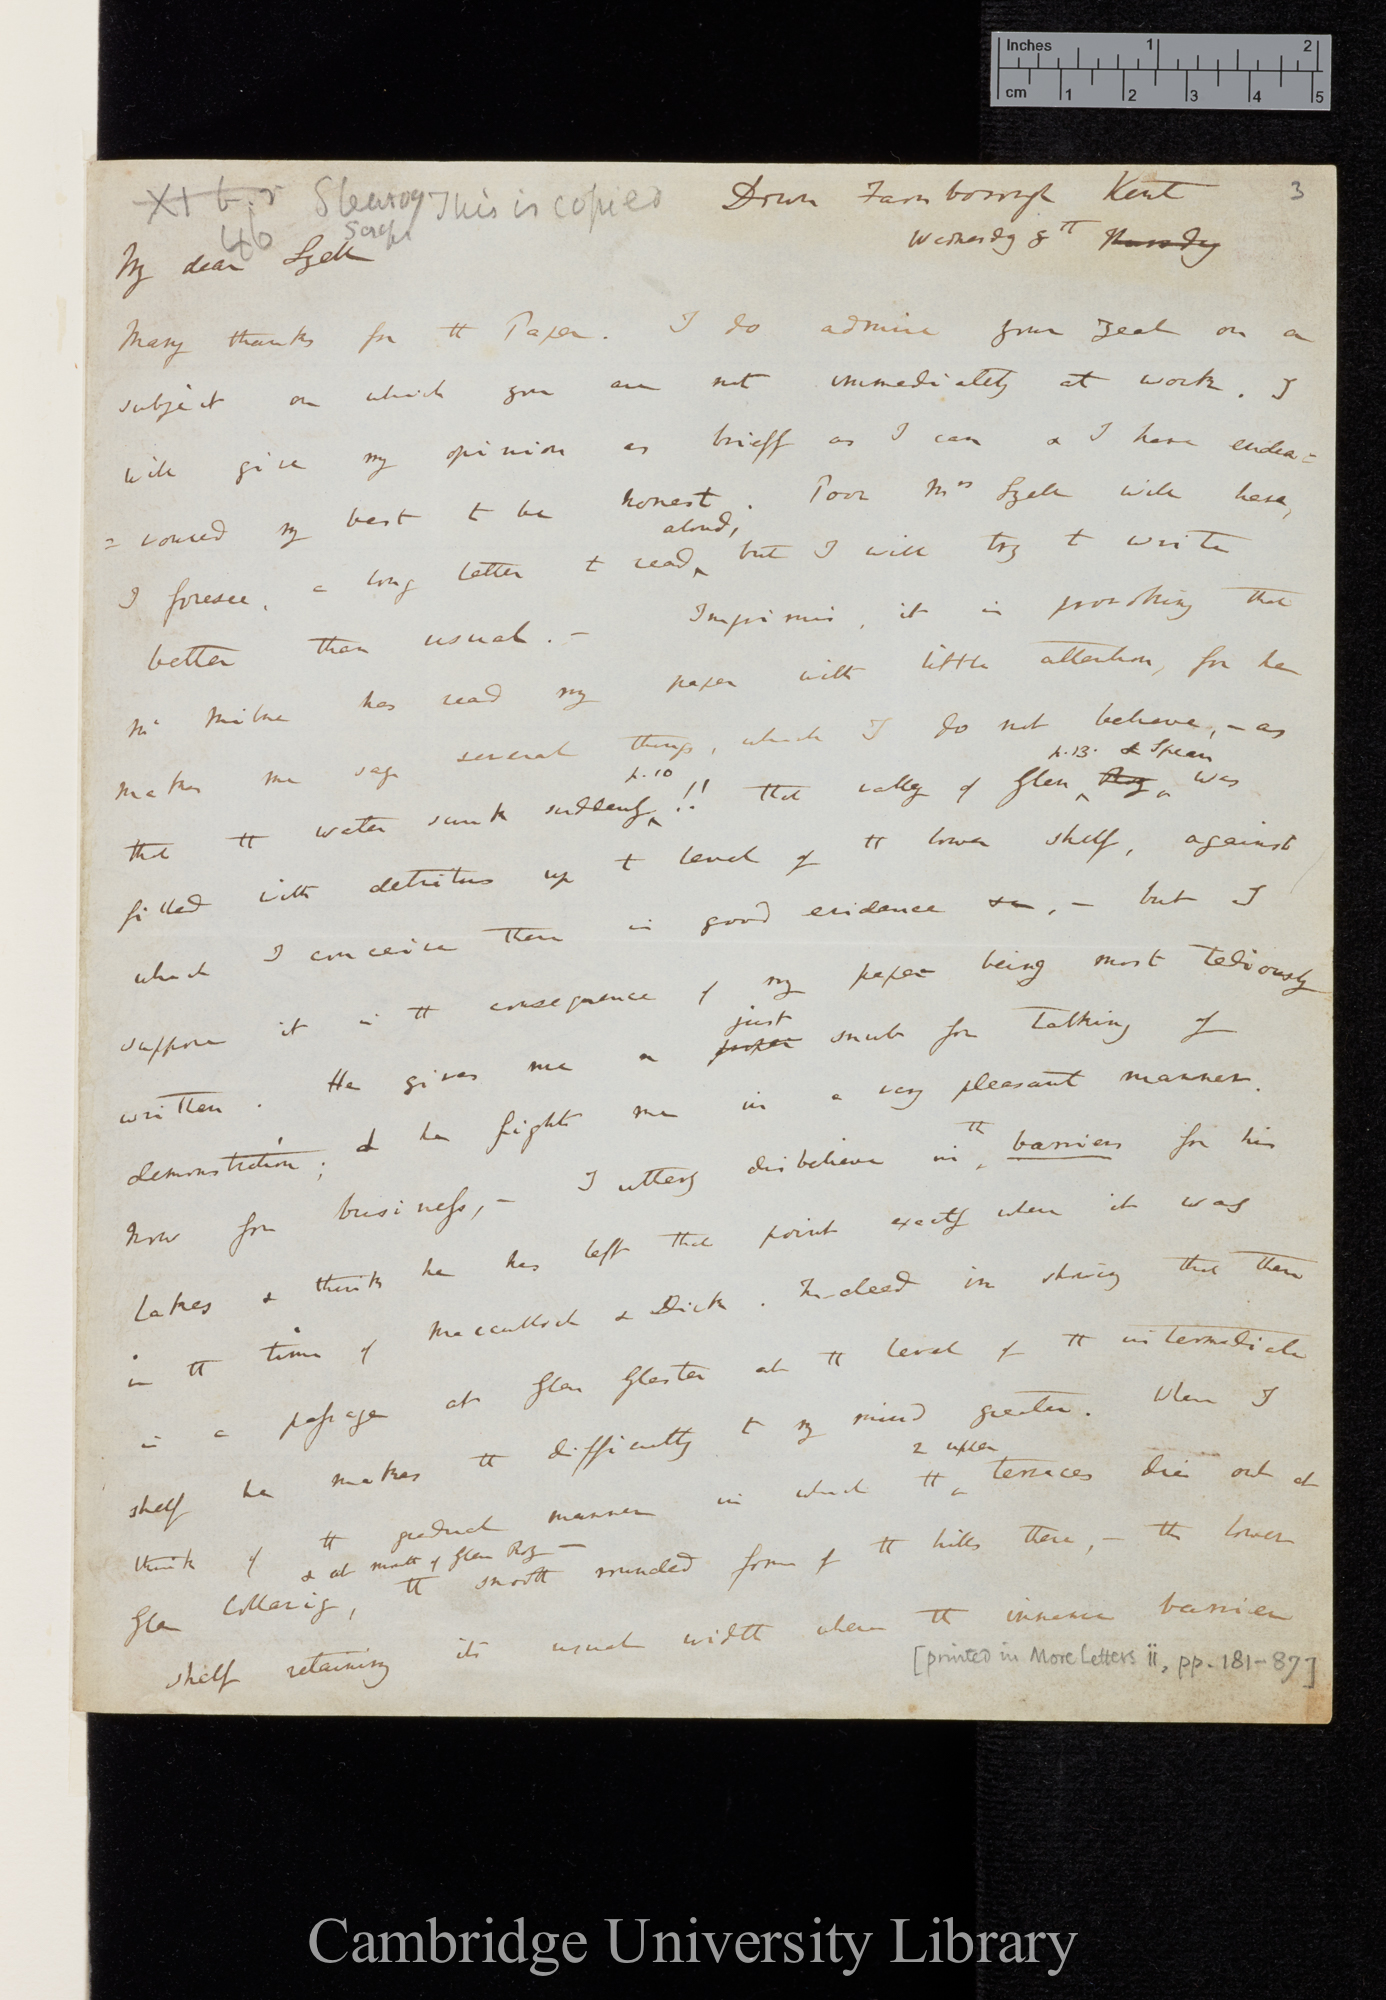 Inches 1 2
cm 1 2 3 4 5
3
This is copied
46
Down Farnborough Kent
Wednesday 8th Thursday
My dear Lyell
Many thanks for the Paper. I do admire your zeal on a
subject on which you are not immediately at work. I
will give my opinion as briefly as I can & I have endea=
=voured my best to be honest. Poor Mrs Lyell will have,
I foresee, a long letter to read aloud, but I will try to write
better than usual.— Imprimis, it is provoking that
Mr Milne has read my paper with little attention, for he
makes me say several things, which I do not believe,— as
that the water sunk suddenly p. 10 !! that vally of Glen p. 13. Roy & Spean was
filled with detritus up to level of the lower shelf, against
which I conceive there is good evidence &c,— but I
suppose it is the consequence of my paper being most tediously
written. He gives me a proper just snub for talking of
demonstration; & he fights me in a very pleasant manner.
Now for business,— I utterly disbelieve in the barriers for his
lakes & think he has left that point exactly where it was
in the time of Macculloch & Dick. Indeed in showing that there
is a passage at Glen Glaster at the level of the intermediate
shelf he makes the difficulty to my mind greater. When I
think of the gradual manner in which the 2 upper terraces die out at
Glen Collarig, & at mouth of Glen Roy— the smooth rounded form of the hills there,— the lower
shelf retaining its usual width where the immense barrier
[printed in More Letters ii, pp. 181–87]
Cambridge University Library